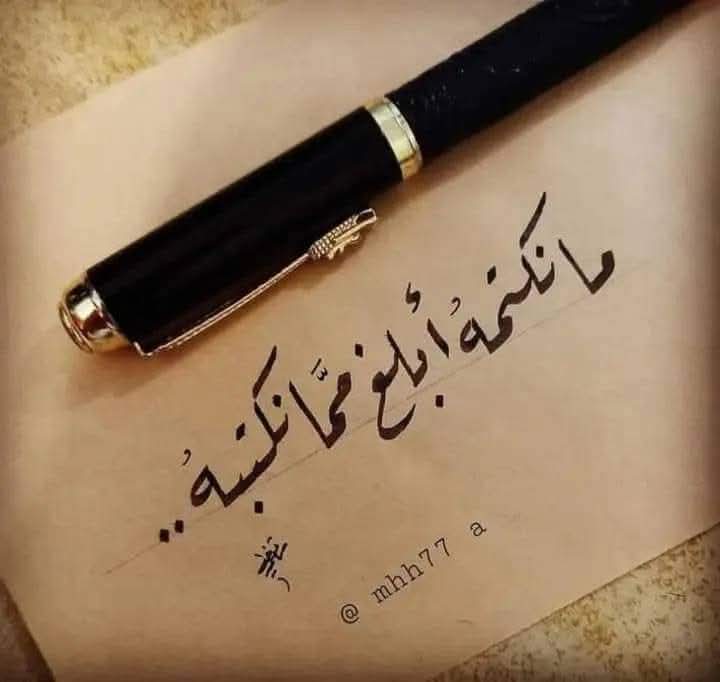 ما نكتمهُ أبلغ ممَّا نكتبهُ..
@ mhh77 a